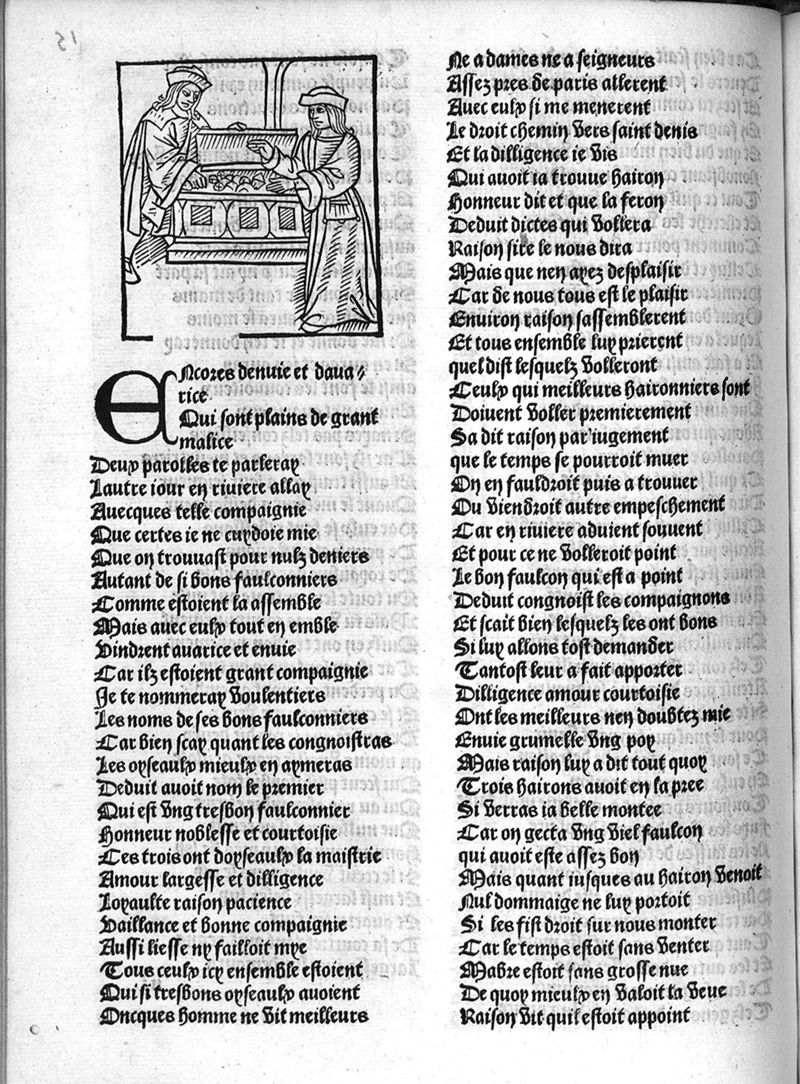 15
Encores denuie et daua/
rice
Qui sont plains de grant
malice
Deux parolles te parleray
Lautre iour en riuiere allay
Auecques telle compaignie
Que certes ie ne cuydoie mie
Que on trouuast pour nulz deniers
Autant de si bons faulconniers
Comme estoient la assemble
Mais auec eulx tout en emble
Vindrent auarice et enuie
Car ilz estoient grant compaignie
Je te nommeray voulentiers
Les noms de ses bons faulconniers
Car bien scay quant les congnoistras
Les oyseaulx mieulx en aymeras
Deduit auoit nom le premier
Qui est vng tresbon faulconnier
Honneur noblesse et courtoisie
Ces trois ont doyseaulx la maistrie
Amour largesse et dilligence
Loyaulte raison pacience
Vaillance et bonne compaignie
Aussi liesse ny failloit mye
Tous ceulx icy ensemble estoient
Qui si tresbons oyseaulx auoient
Oncques homme ne vit meilleurs
Ne a dames ne a seigneurs
Assez pres de paris allerent
Auec eulx si me menerent
Le droit chemin vers saint denis
Et la dilligence ie vis
Qui auoit ia trouue hairon
Honneur dit et que la feron
Deduit dictes qui vollera
Raison sire le nous dira
Mais que nen ayez desplaisir
Car de nous tous est le plaisir
Enuiron raison sassemblerent
Et tous ensemble luy prierent
quel dist lesquelz volleront
Ceulx qui meilleurs haironniers sont
Doiuent voller premierement
Sa dit raison par iugement
que le temps se pourroit muer
On en fauldroit puis a trouuer
Ou viendroit autre empeschement
Car en riuiere aduient souuent
Et pour ce ne volleroit point
Le bon faulcon qui est a point
Deduit congnoist les compaignons
Et scait bien lesquelz les ont bons
Si luy allons tost demander
Tantost leur a fait apporter
Dilligence amour courtoisie
Ont les meilleurs nen doubtez mie
Enuie grumelle vng poy
Mais raison luy a dit tout quoy
Trois hairons auoit en la pree
Si verras ia belle montee
Car on gecta vng viel faulcon
qui auoit este assez bon
Mais quant iusques au hairon venoit
Nul dommaige ne luy portoit
Si les fist droit sur nous monter
Car le temps estoit sans venter
Mabre estoit sans grosse nue
De quoy mieulx en valoit la veue
Raison vit quil estoit appoint